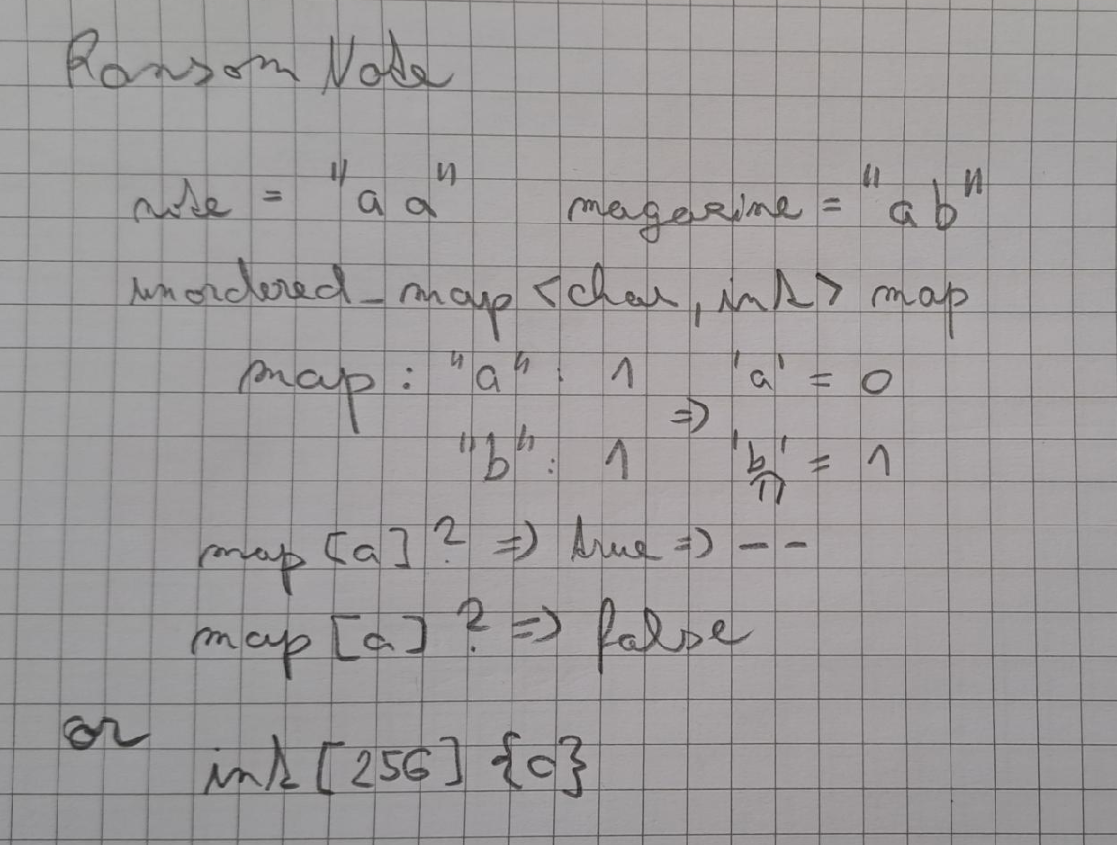 Ransom Note
note = "aa" magazine = "ab"
unordered_map <char, int> map
map : "a" : 1 'a' = 0
=>
"b" : 1 'b' = 1
map [a] ? => true => --
map [a] ? => false
or int [256] {0}